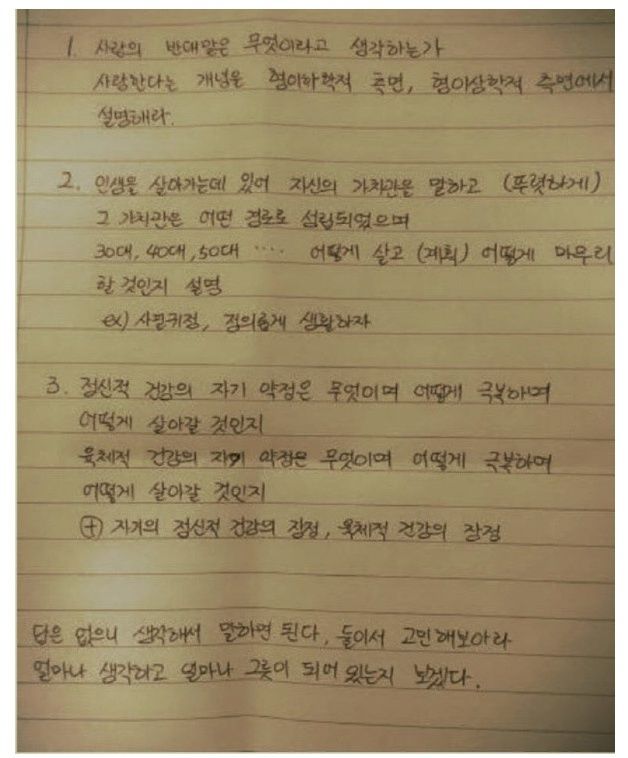 1. 사랑의 반대말은 무엇이라고 생각하는가
사랑한다는 개념을 형이하학적 측면, 형이상학적 측면에서
설명해라.
2. 인생을 살아가는데 있어 자신의 가치관은 말하고 (뚜렷하게)
그 가치관은 어떤 경로로 성립되었으며
30대, 40대, 50대 ···· 어떻게 살고 (계획) 어떻게 마무리
할 것인지 설명
ex) 사필귀정, 정의롭게 생활하자
3. 정신적 건강의 자기 약점은 무엇이며 어떻게 극복하며
어떻게 살아갈 것인지
육체적 건강의 자기 약점은 무엇이며 어떻게 극복하며
어떻게 살아갈 것인지
⊕ 자기의 정신적 건강의 장점, 육체적 건강의 장점
답은 없으니 생각해서 말하면 된다, 둘이서 고민해보아라
얼마나 생각하고 얼마나 그릇이 되어 있는지 보겠다.